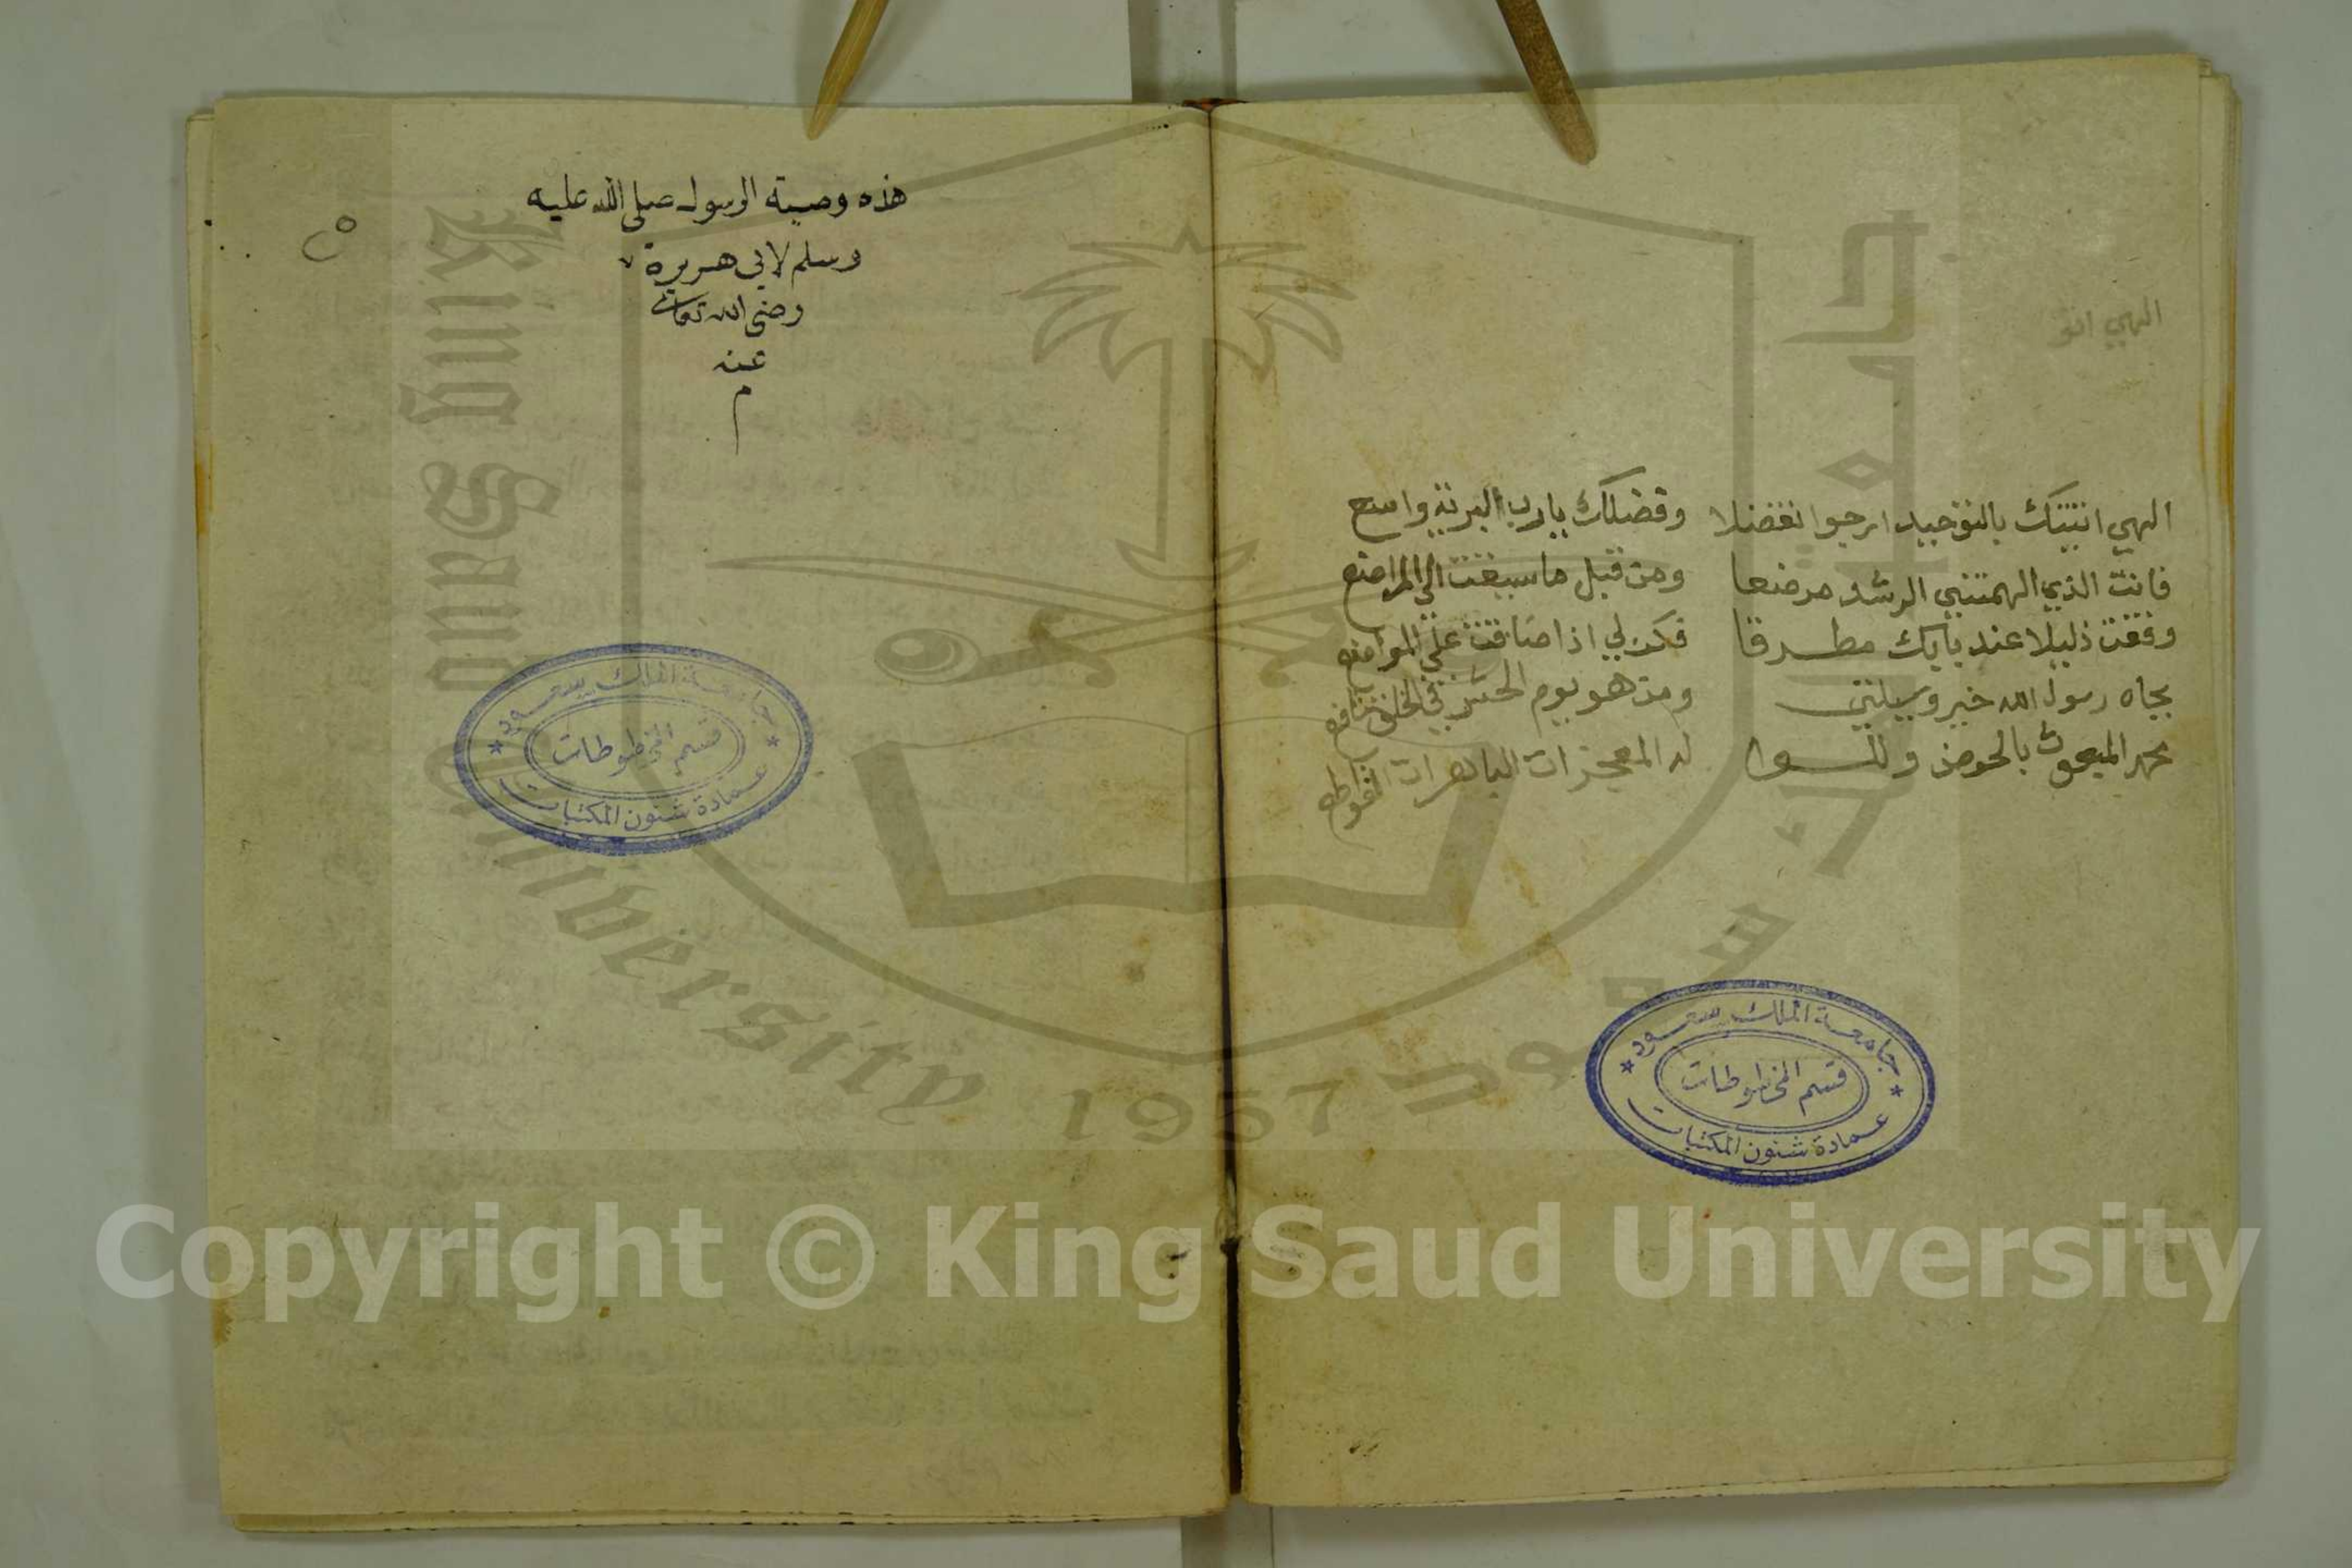 الهي انو
الهي اتيتك بالتوحيد ارجوا تفضلا وفضلك يارب البرية واسع
فانت الذي الهمتني الرشد مرضعا ومن قبل ما سيغت الي المراضع
وقفت ذليلا عند بابك مطرقا فكن لي اذا ضاقت علي المواضع
بجاه رسول الله خير وسيلتي ومن هو يوم الحشر في الخلق شافع
محمد المبعوث بالحوض واللوا له المعجزات الباهرات
جامعة الملك سعود
قسم المخطوطات
عمادة شئون المكتبات
هذه وصية الرسول صلى الله عليه
وسلم لابي هريرة
رضى الله تعالى
عنه
م
جامعة الملك سعود
قسم المخطوطات
عمادة شئون المكتبات
King Saud University
1957
جامعة الملك سعود
Copyright © King Saud University